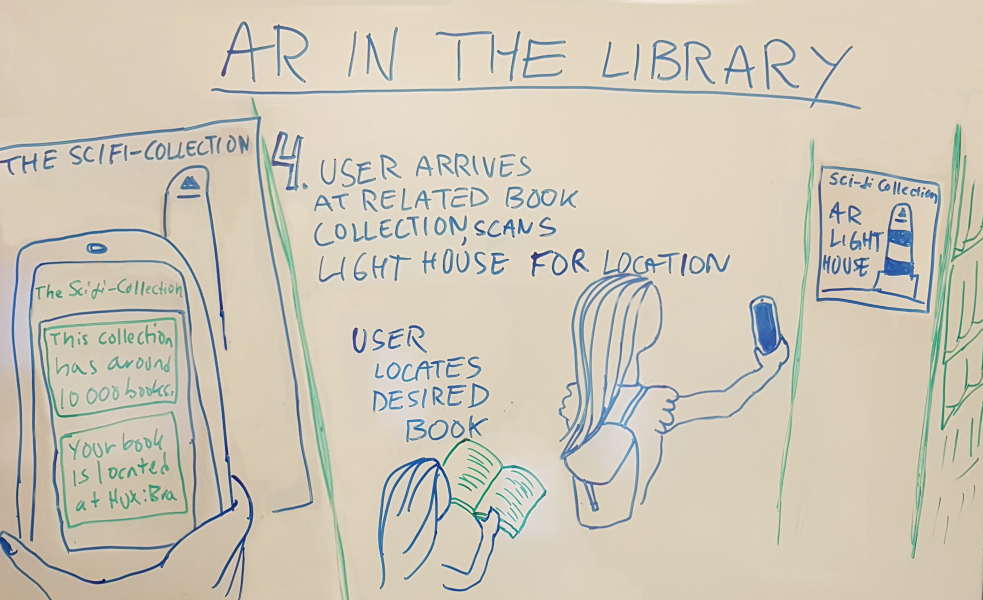 AR IN THE LIBRARY
THE SCIFI-COLLECTION
The Scifi-Collection
This collection
has around
10 000 books.
Your book
is located
at Hux:Bra
4. USER ARRIVES
AT RELATED BOOK
COLLECTION, SCANS
LIGHT HOUSE FOR LOCATION
USER
LOCATES
DESIRED
BOOK
Sci-fi Collection
AR
LIGHT
HOUSE